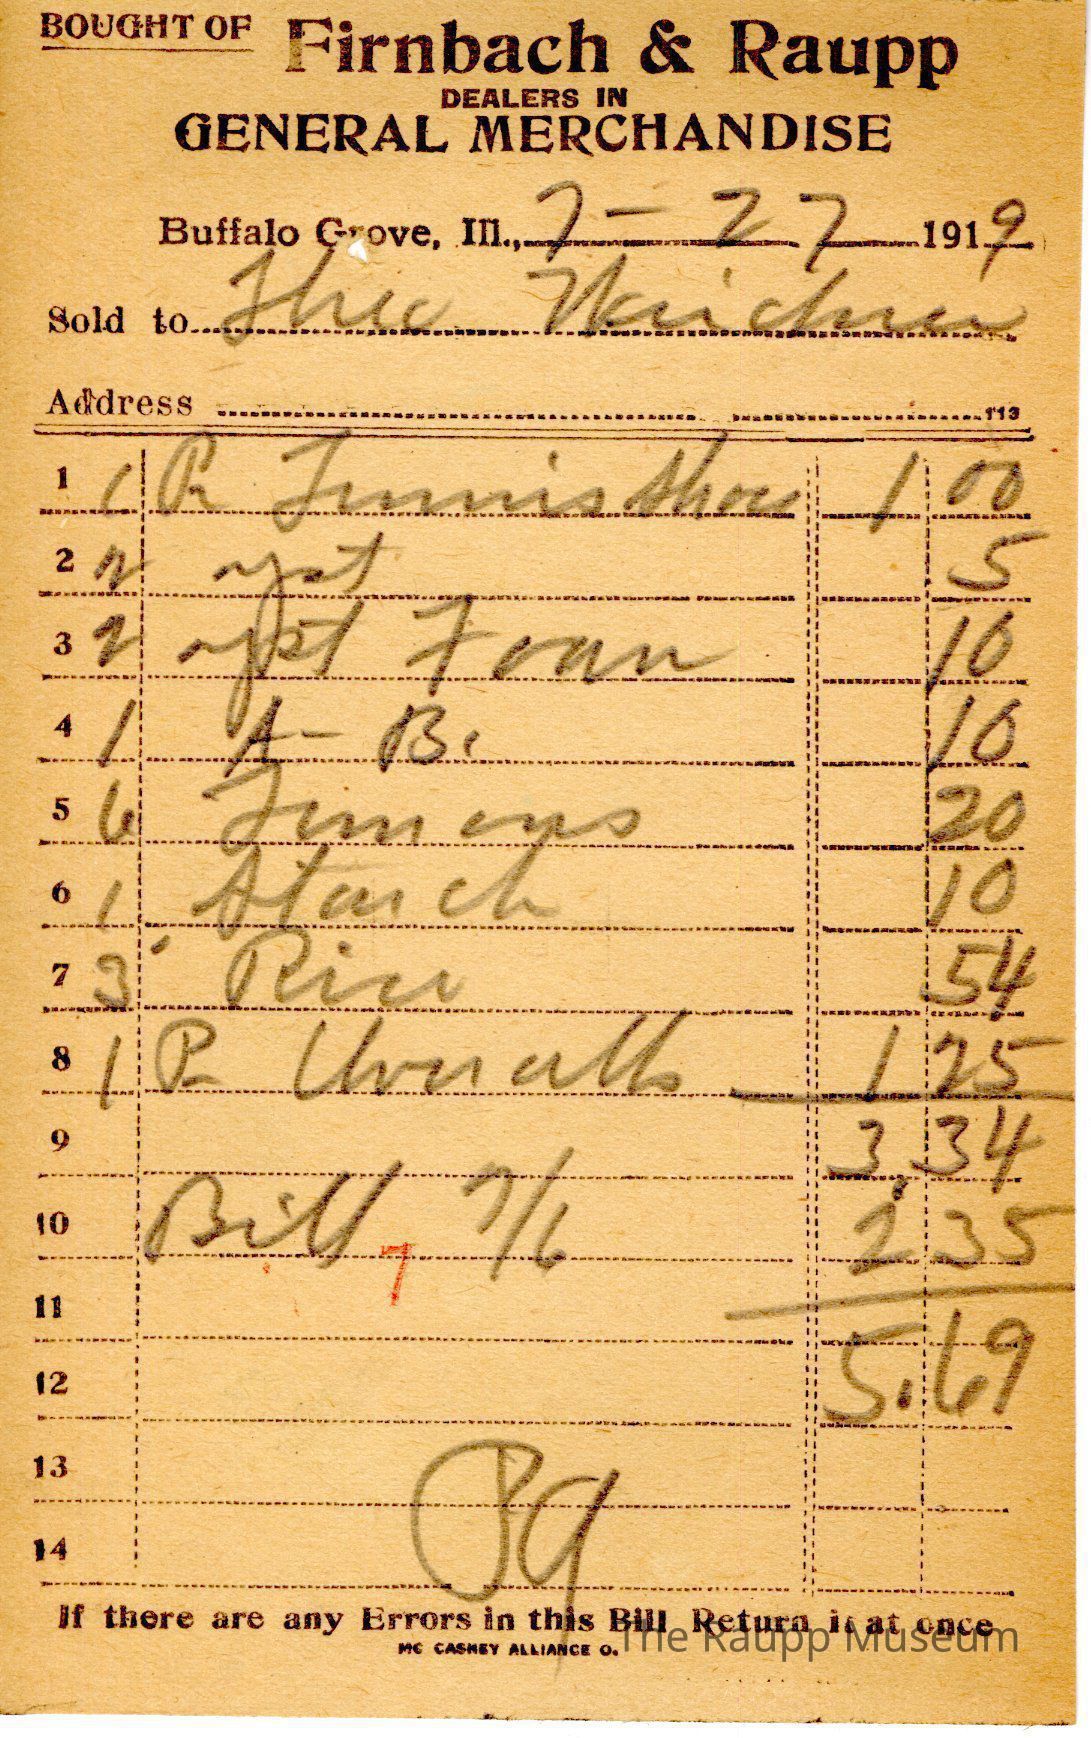 BOUGHT OF Firnbach & Raupp
DEALERS IN
GENERAL MERCHANDISE
Buffalo Grove, Ill., 7-27 1919
Sold to Theo
Address 113
1 1 Pr Tennis Shoes 1 00
2 2 yst 5
3 2 yst Foam 10
4 1 A-B. 10
5 6 Lemons 20
6 1 Starch 10
7 3 Rice 54
8 1 Pr Overalls 1 25
9 3.34
10 Bill 7/6 2 35
7
11
12 5.69
13
14
If there are any Errors in this Bill Return it at once
MC CASKEY ALLIANCE O.
The Raupp Museum